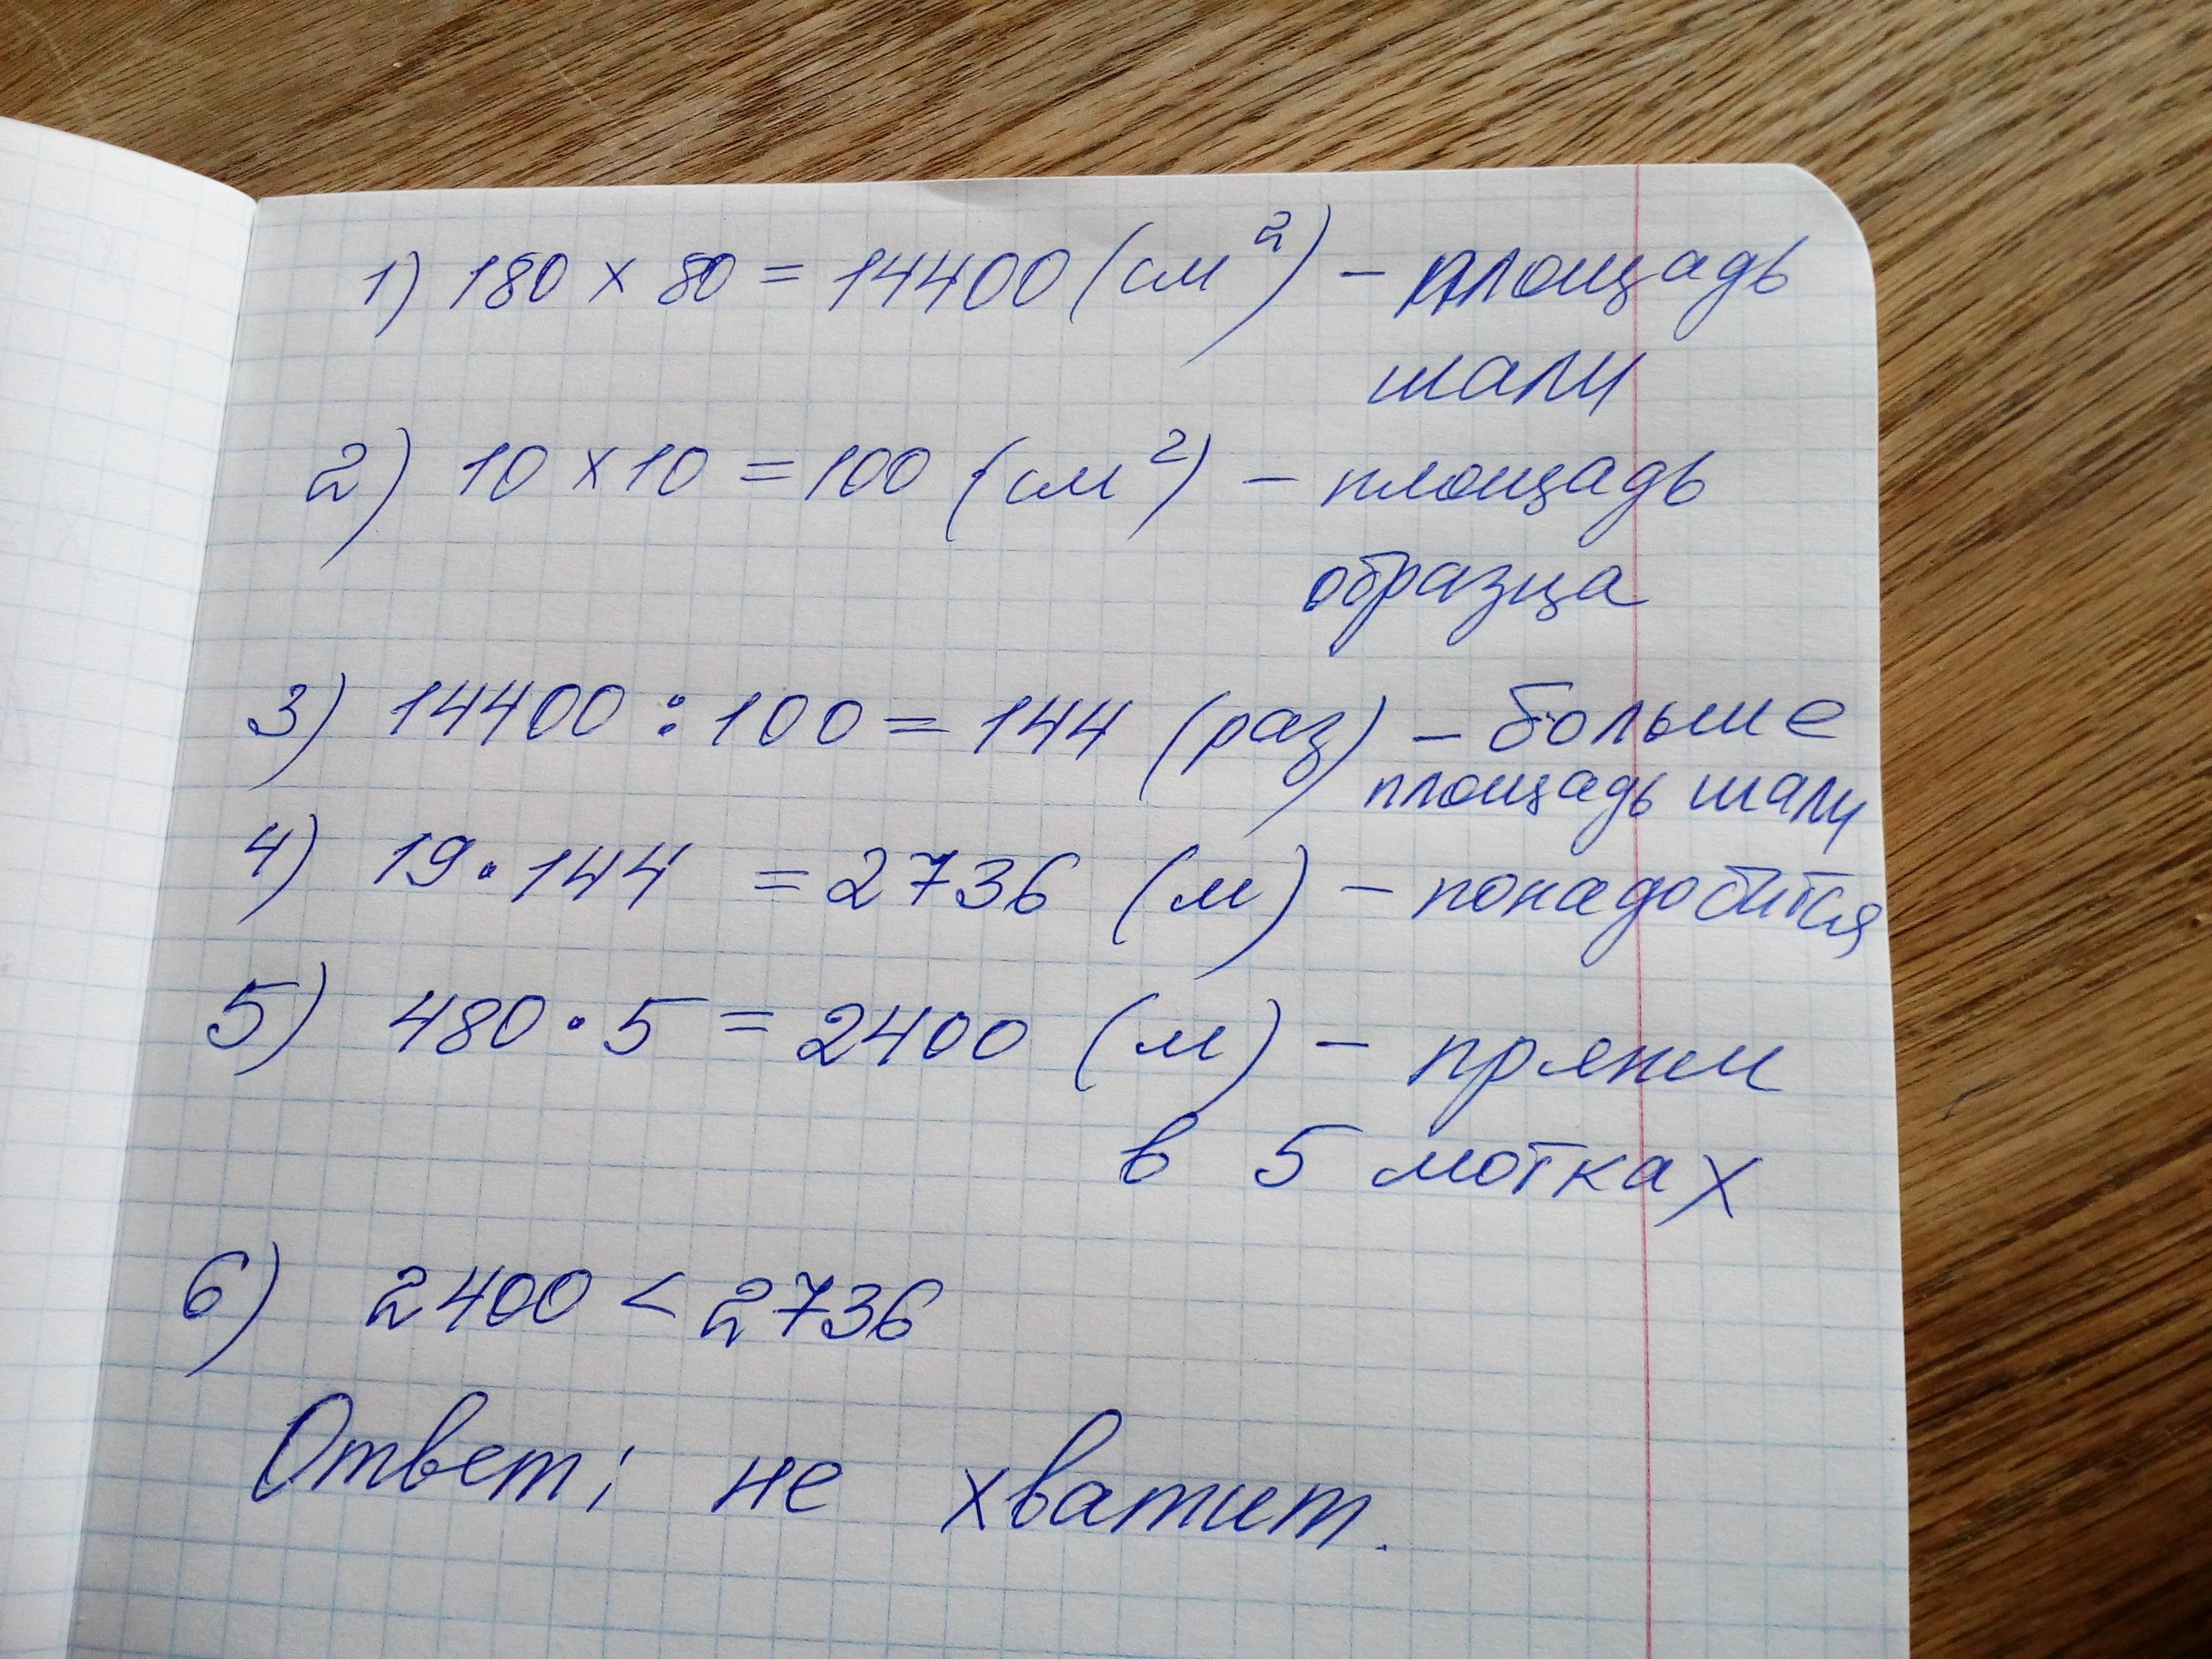 1) 180 × 80 = 14400 (см²) – площадь
шали
2) 10 × 10 = 100 (см²) – площадь
образца
3) 14400 : 100 = 144 (раз) – больше
площадь шали
4) 19 · 144 = 2736 (м) – понадобится
5) 480 · 5 = 2400 (м) – пряжи
в 5 мотках
6) 2400 < 2736
Ответ: не хватит.